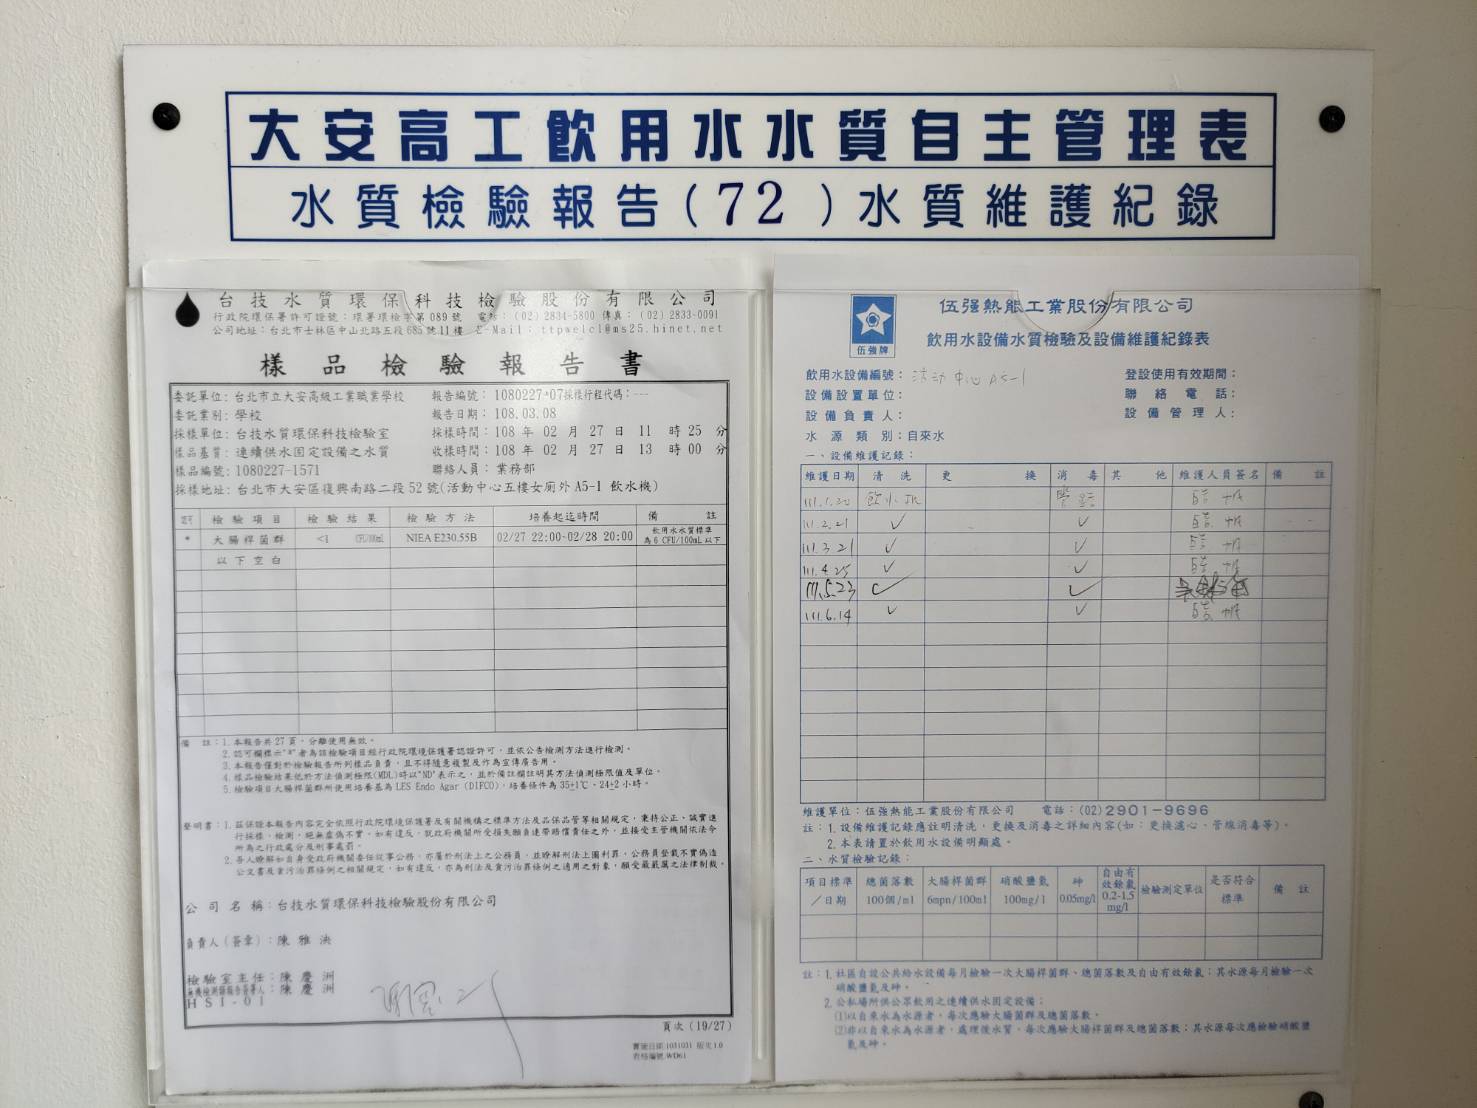 大安高工飲用水水質自主管理表
水質檢驗報告(72)水質維護紀錄
台技水質環保科技檢驗股份有限公司
行政院環保署許可證號：環署環檢字第089號 電話：(02)2834-5800 傳真：(02)2833-0091
公司地址：台北市士林區中山北路五段685號11樓 E-Mail：ttpwelcl@ms25.hinet.net
樣品檢驗報告書
委託單位：台北市立大安高級工業職業學校 報告編號：1080227-07採樣行程代碼：---
委託業別：學校 報告日期：108.03.08
採樣單位：台技水質環保科技檢驗室 採樣時間：108 年 02 月 27 日 11 時 25 分
樣品基質：連續供水固定設備之水質 收樣時間：108 年 02 月 27 日 13 時 00 分
樣品編號：1080227-1571 聯絡人員：業務部
採樣地址：台北市大安區復興南路二段52號(活動中心五樓女廁外A5-1 飲水機)
認可 檢驗項目 檢驗結果 檢驗方法 培養起迄時間 備註
* 大腸桿菌群 <1 CFU/100mL NIEA E230.55B 02/27 22:00~02/28 20:00 飲用水水質標準為6 CFU/100mL以下
以下空白
備註：1.本報告共27頁，分離使用無效。
2.認可欄標示"*"者為該檢驗項目經行政院環境保護署認證許可，並依公告檢測方法進行檢測。
3.本報告僅對於檢驗報告所列樣品負責，且不得隨意複製及作為宣傳廣告用。
4.樣品檢驗結果低於方法偵測極限(MDL)時以"ND"表示之，並於備註欄註明其方法偵測極限值及單位。
5.檢驗項目大腸桿菌群所使用培養基為LES Endo Agar (DIFCO)，培養條件為35±1℃、24±2小時。
聲明書：1.茲保證本報告內容完全依照行政院環境保護署及有關機構之標準方法及品保品管等相關規定，秉持公正、誠實進
行採樣、檢測，絕無虛偽不實，如有違反，就政府機關所受損失願負連帶賠償責任之外，並接受主管機關依法令
所為之行政處分及刑事處罰。
2.吾人瞭解如自身受政府機關委任從事公務，亦屬於刑法上之公務員，並瞭解刑法上圖利罪、公務員登載不實偽造
公文書及貪污治罪條例之相關規定，如有違反，亦為刑法及貪污治罪條例之適用之對象，願受最嚴厲之法律制裁。
公司名稱：台技水質環保科技檢驗股份有限公司
負責人(簽章)：陳雅
檢驗室主任：陳慶洲
無機檢測類報告簽署人：陳慶洲
HSI-01
頁次 (19/27)
實施日期 1031031 版次1.0
表格編號 WD61
伍強牌
伍强熱能工業股份有限公司
飲用水設備水質檢驗及設備維護紀錄表
飲用水設備編號：活动中心A5-1 登設使用有效期間：
設備設置單位： 聯絡電話：
設備負責人： 設備管理人：
水源類別：自來水
一、設備維護記錄：
維護日期 清洗 更換 消毒 其他 維護人員簽名 備註
111.1.20 飲水
111.2.21 ✓ ✓
111.3.21 ✓ ✓
111.4.25 ✓ ✓
111.5.23 ✓ ✓
111.6.14 ✓ ✓
維護單位：伍强熱能工業股份有限公司 電話：(02)2901-9696
註：1.設備維護記錄應註明清洗，更換及消毒之詳細內容(如：更換濾心、管線消毒等)。
2.本表請置於飲用水設備明顯處。
二、水質檢驗記錄：
項目標準／日期 總菌落數100個/ml 大腸桿菌群6mpn/100ml 硝酸鹽氮100mg/l 砷0.05mg/l 自由有效餘氯0.2-1.5mg/l 檢驗測定單位 是否符合標準 備註
註：1.社區自設公共給水設備每月檢驗一次大腸桿菌群、總菌落數及自由有效餘氯；其水源每月檢驗一次
硝酸鹽氮及砷。
2.公私場所供公眾飲用之連續供水固定設備：
(1)以自來水為水源者，每次應驗大腸菌群及總菌落數。
(2)非以自來水為水源者，處理後水質，每次應驗大腸桿菌群及總菌落數；其水源每次應檢驗硝酸鹽
氮及砷。